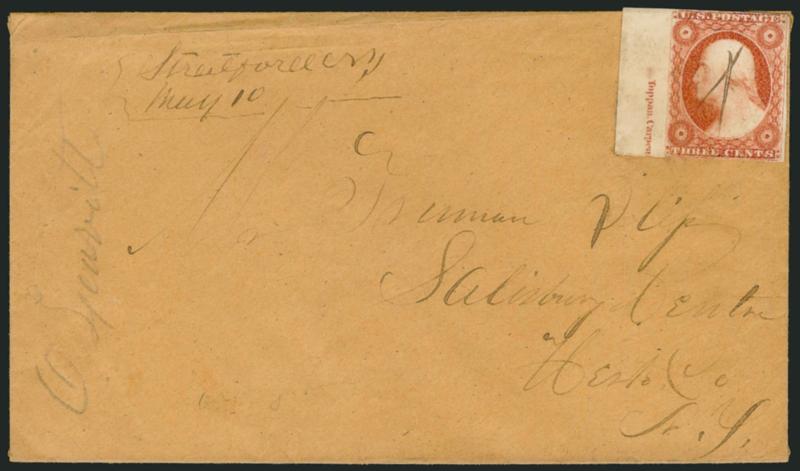 Stratford N.Y.
May 10
U.S. POSTAGE
THREE CENTS
Toppan, Carpen
Mr Truman
Salisbury Centre
Herk. Co
N. Y.